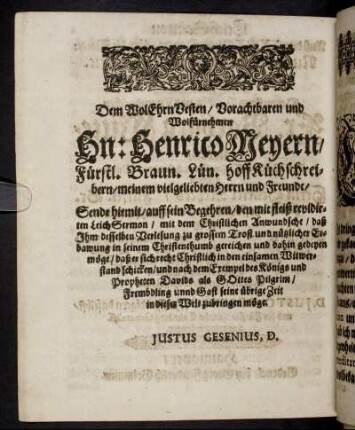 Dem WolEhrnVesten / Vorachtbaren und
Wolfürnehmen
Hn: Henrico Meyern /
Fürstl. Braun. Lün. Hoff Küchschrei-
bern / meinem vielgeliebten Herrn und Freunde /
Sende hiemit / auff sein Begehren / den mit fleiß revidir-
ten Leich Sermon / mit dem Christlichen Anwundsche / daß
Ihm desselben Verlesung zu grossem Trost und nützlicher Er-
bawung in seinem Christenthumb gereichen und dahin gedeyen
möge / daß er sich recht Christlich in den einsamen Witwer-
stand schicken / und nach dem Exempel des Königs und
Propheten Davids als GOttes Pilgrim /
Frembdling unnd Gast seine übrige Zeit
in dieser Welt zubringen möge.
JUSTUS GESENIUS, D.